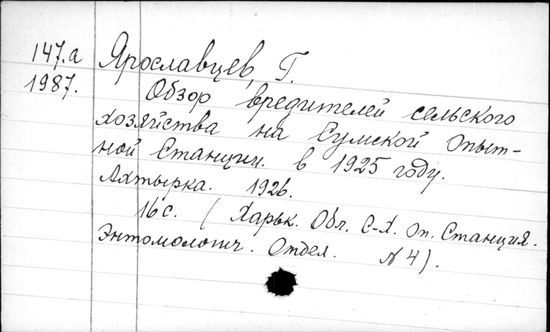 147.а Ярославцев, Г.
1987. Обзор вредителей сельского
хозяйства на Сумской Опыт-
ной Станции. в 1925 году.
Ахтырка. 1926.
16 с. (Харьк. Обл. С-Х. Оп. Станция.
Энтомологич. Отдел. № 4).